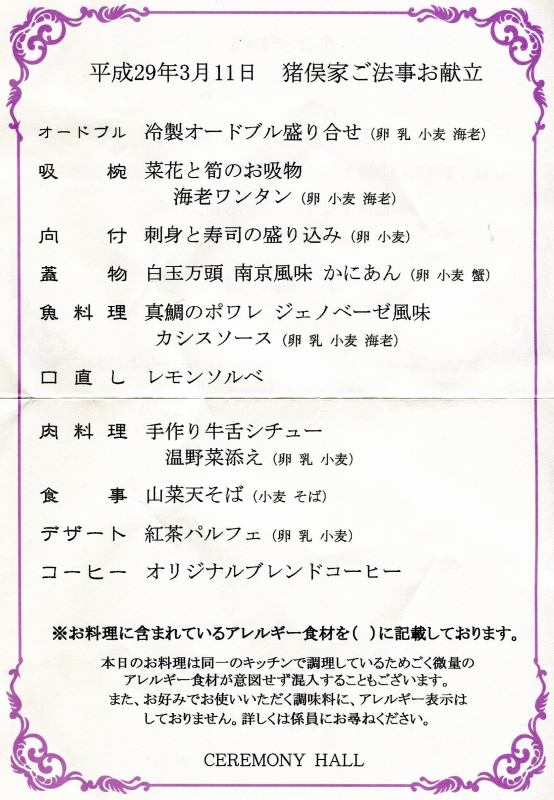 平成29年3月11日　猪俣家ご法事お献立
オードブル 冷製オードブル盛り合せ（卵 乳 小麦 海老）
吸椀 菜花と筍のお吸物
海老ワンタン（卵 小麦 海老）
向付 刺身と寿司の盛り込み（卵 小麦）
蓋物 白玉万頭 南京風味 かにあん（卵 小麦 蟹）
魚料理 真鯛のポワレ ジェノベーゼ風味
カシスソース（卵 乳 小麦 海老）
口直し レモンソルベ
肉料理 手作り牛舌シチュー
温野菜添え（卵 乳 小麦）
食事 山菜天そば（小麦 そば）
デザート 紅茶パルフェ（卵 乳 小麦）
コーヒー オリジナルブレンドコーヒー
※お料理に含まれているアレルギー食材を（ ）に記載しております。
本日のお料理は同一のキッチンで調理しているためごく微量の
アレルギー食材が意図せず混入することもございます。
また、お好みでお使いいただく調味料に、アレルギー表示は
しておりません。詳しくは係員にお尋ねください。
CEREMONY HALL